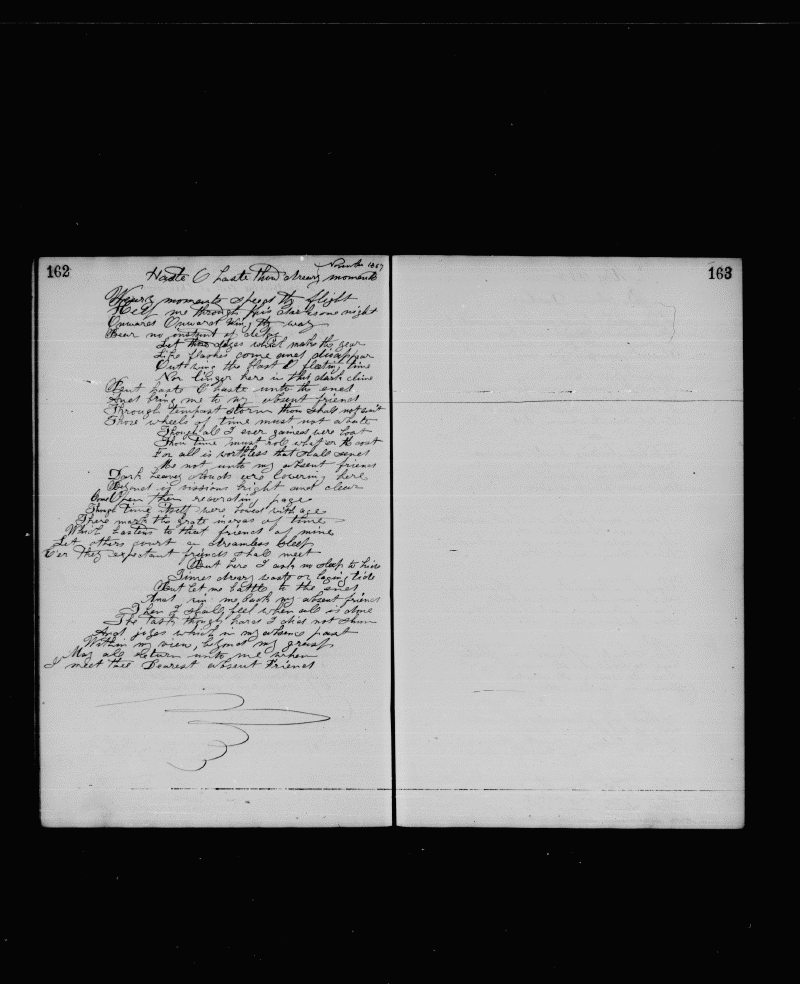 162
November 1867
Haste O haste thou dreary moments
Weary moments speed thy flight
Help me through this darksome night
Onward Onward wing thy way
Bear no instant of delay
Let those days which make the year
Like flashes come and disappear
the fleeting time
Nor linger here in this dark clime
But haste O haste unto the end
And bring me to my absent friend
Through tempest storm thou shalt not
Those wheels of time must not abate
Though all I ever gained were lost
Thou time must roll what er the cost
For all is worthless that shall send
Me not unto my absent friend
Dark heavy clouds are lowering here
Beyond is visions bright and clear
Upon then recording page
Though time itself were bowed with age
There mark the of time
Which hastens to that friend of mine
Let others court a dreamless sleep
E'er they expectant friends shall meet
But here I ask no sleep to hide
Times dreary waste or laging tide
But let me battle to the end
And me back my absent friend
Then I shall feel when all is done
The task though hard I did not shun
And joys which in my absence past
Within my view, beyond my grasp
May all return unto me when
I meet thee Dearest absent Friend
163